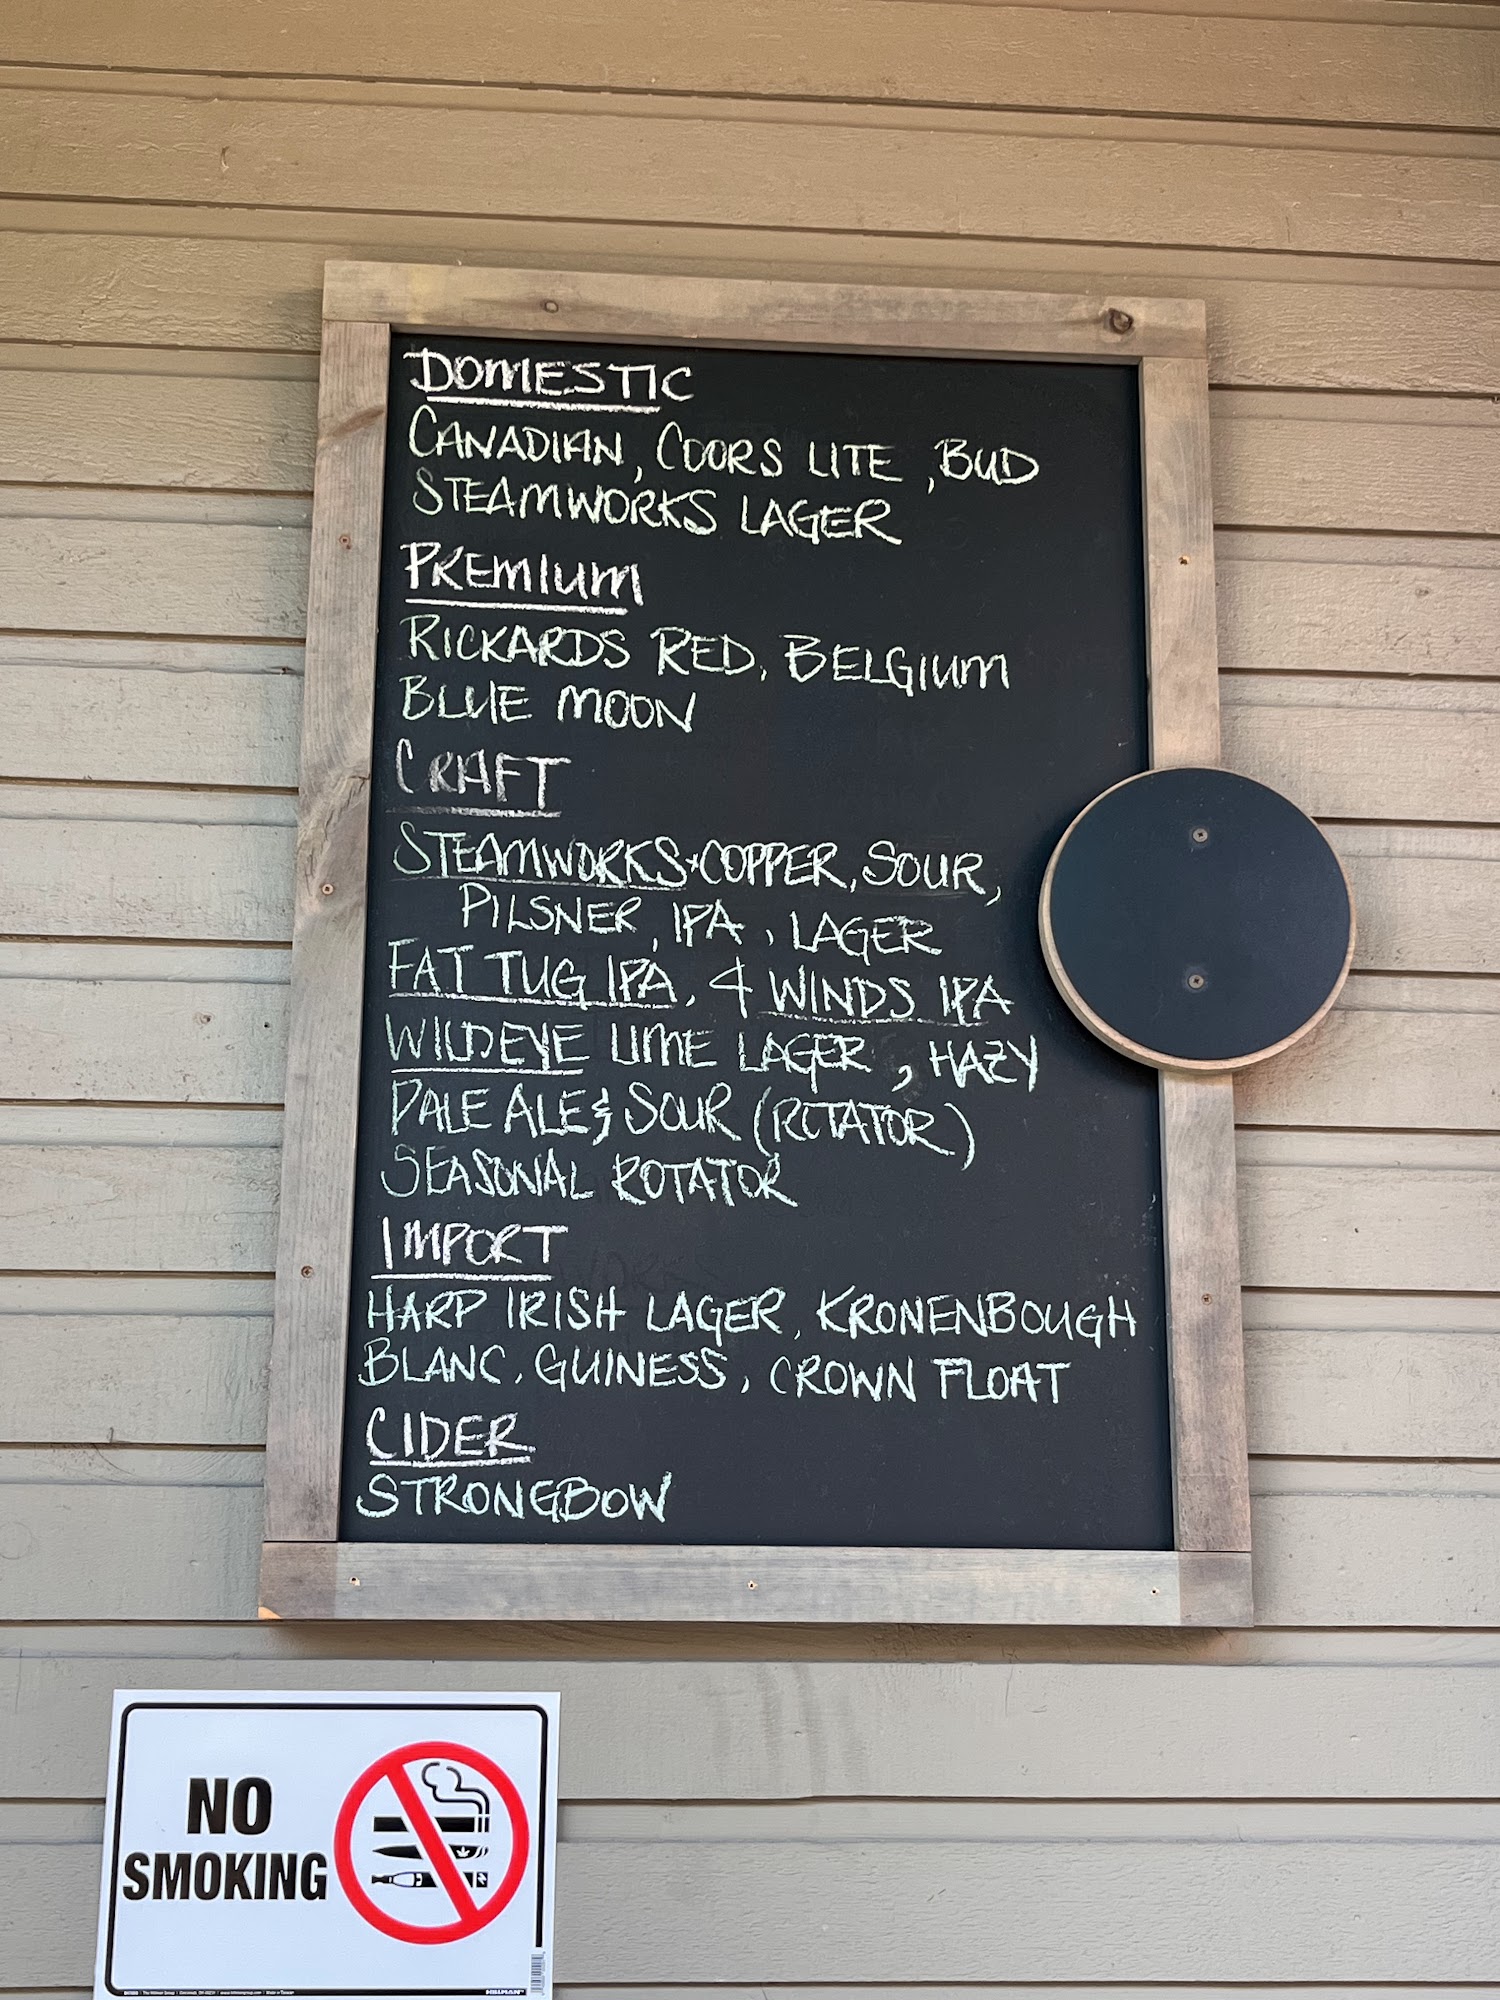 DOMESTIC
CANADIAN, COORS LITE, BUD
STEAMWORKS LAGER
PREMIUM
RICKARDS RED, BELGIUM
BLUE MOON
CRAFT
STEAMWORKS COPPER, SOUR,
PILSNER, IPA, LAGER
FAT TUG IPA, 4 WINDS IPA
WILDEYE LIME LAGER, HAZY
PALE ALE & SOUR (ROTATOR)
SEASONAL ROTATOR
IMPORT
HARP IRISH LAGER, KRONENBOUGH
BLANC, GUINESS, CROWN FLOAT
CIDER
STRONGBOW
NO
SMOKING
HILLMAN